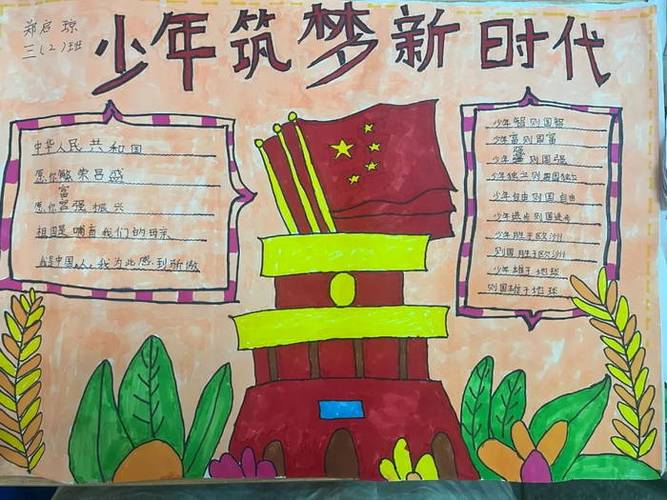 郑启琼
三(2)班
少年筑梦新时代
中华人民共和国
愿你繁荣昌盛
愿你富强振兴
祖国是哺育我们的母亲
我是中国人，我为此感到骄傲
少年智则国智
少年富则国富
少年强则国强
少年独立则国独立
少年自由则国自由
少年进步则国进步
少年胜于欧洲
则国胜于欧洲
少年雄于地球
则国雄于地球